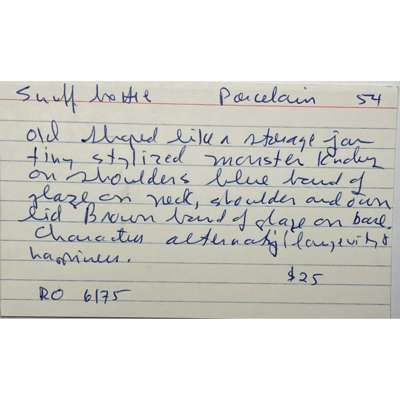 Snuff bottle Porcelain 54
old shaped like a storage jar
tiny stylized monster
on shoulders blue band of
glaze on neck, shoulder and own
lid Brown band of glaze on base.
Characters alternating (longevity &
happiness.
$25
RO 6/75